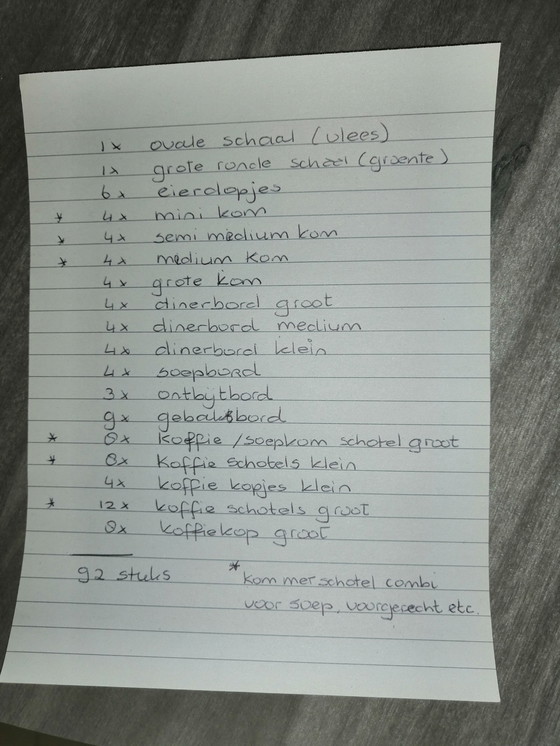 1x ovale schaal (vlees)
1x grote ronde schaal (groente)
6x eierdopjes
* 4x mini kom
* 4x semi medium kom
* 4x medium kom
4x grote kom
4x dinerbord groot
4x dinerbord medium
4x dinerbord klein
4x soepbord
3x ontbijtbord
9x gebaksbord
* 8x koffie /soepkom schotel groot
* 8x koffie schotels klein
4x koffie kopjes klein
* 12x koffie schotels groot
8x koffiekop groot
92 stuks * kom met schotel combi
voor soep, voorgerecht etc.